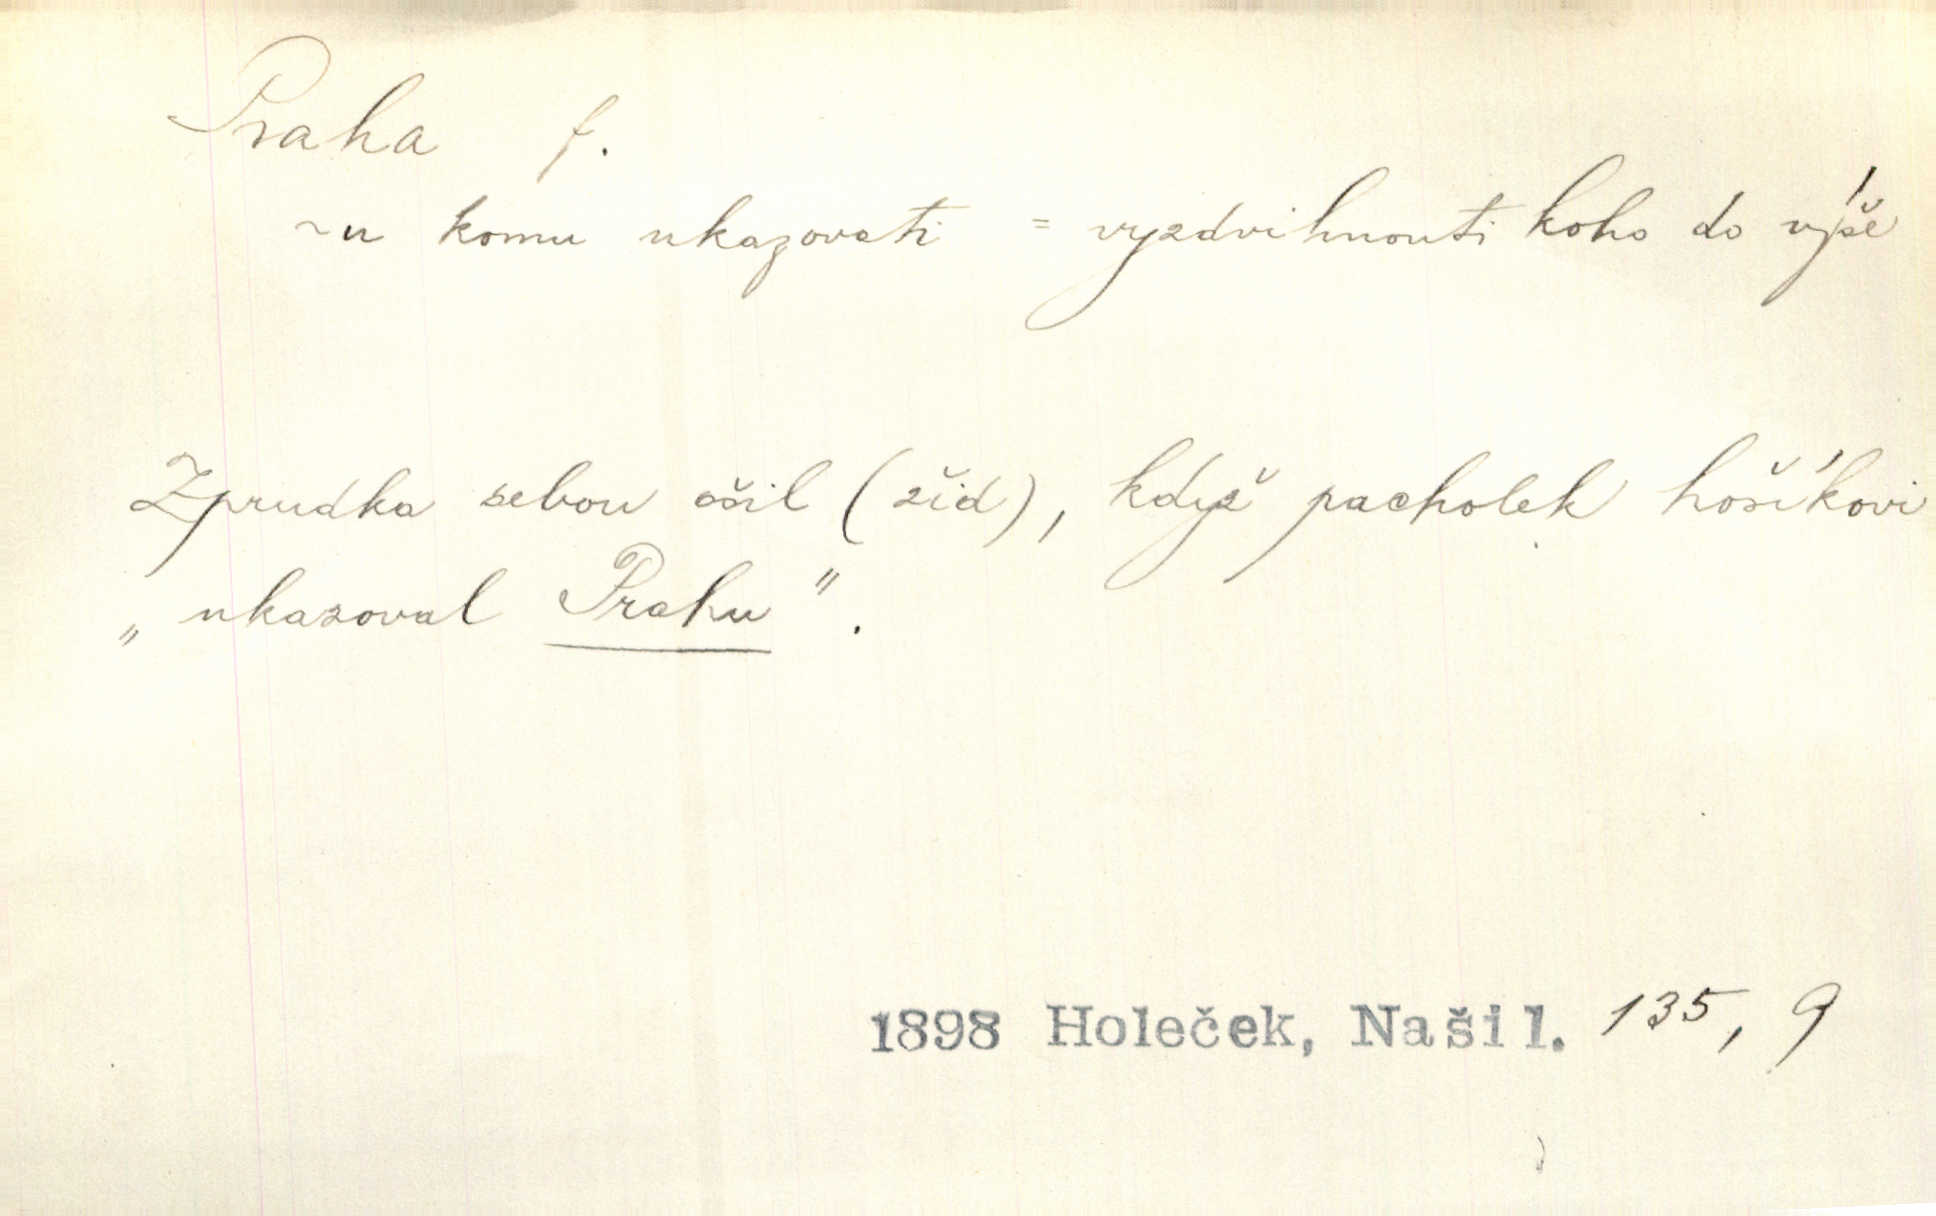 Praha f.
~u komu ukazovati = vyzdvihnouti koho do výše
Zprudka sebou ošil (žid), když pacholek hošíkovi
„ukazoval Prahu".
1898 Holeček, Naši 1. 135, 9